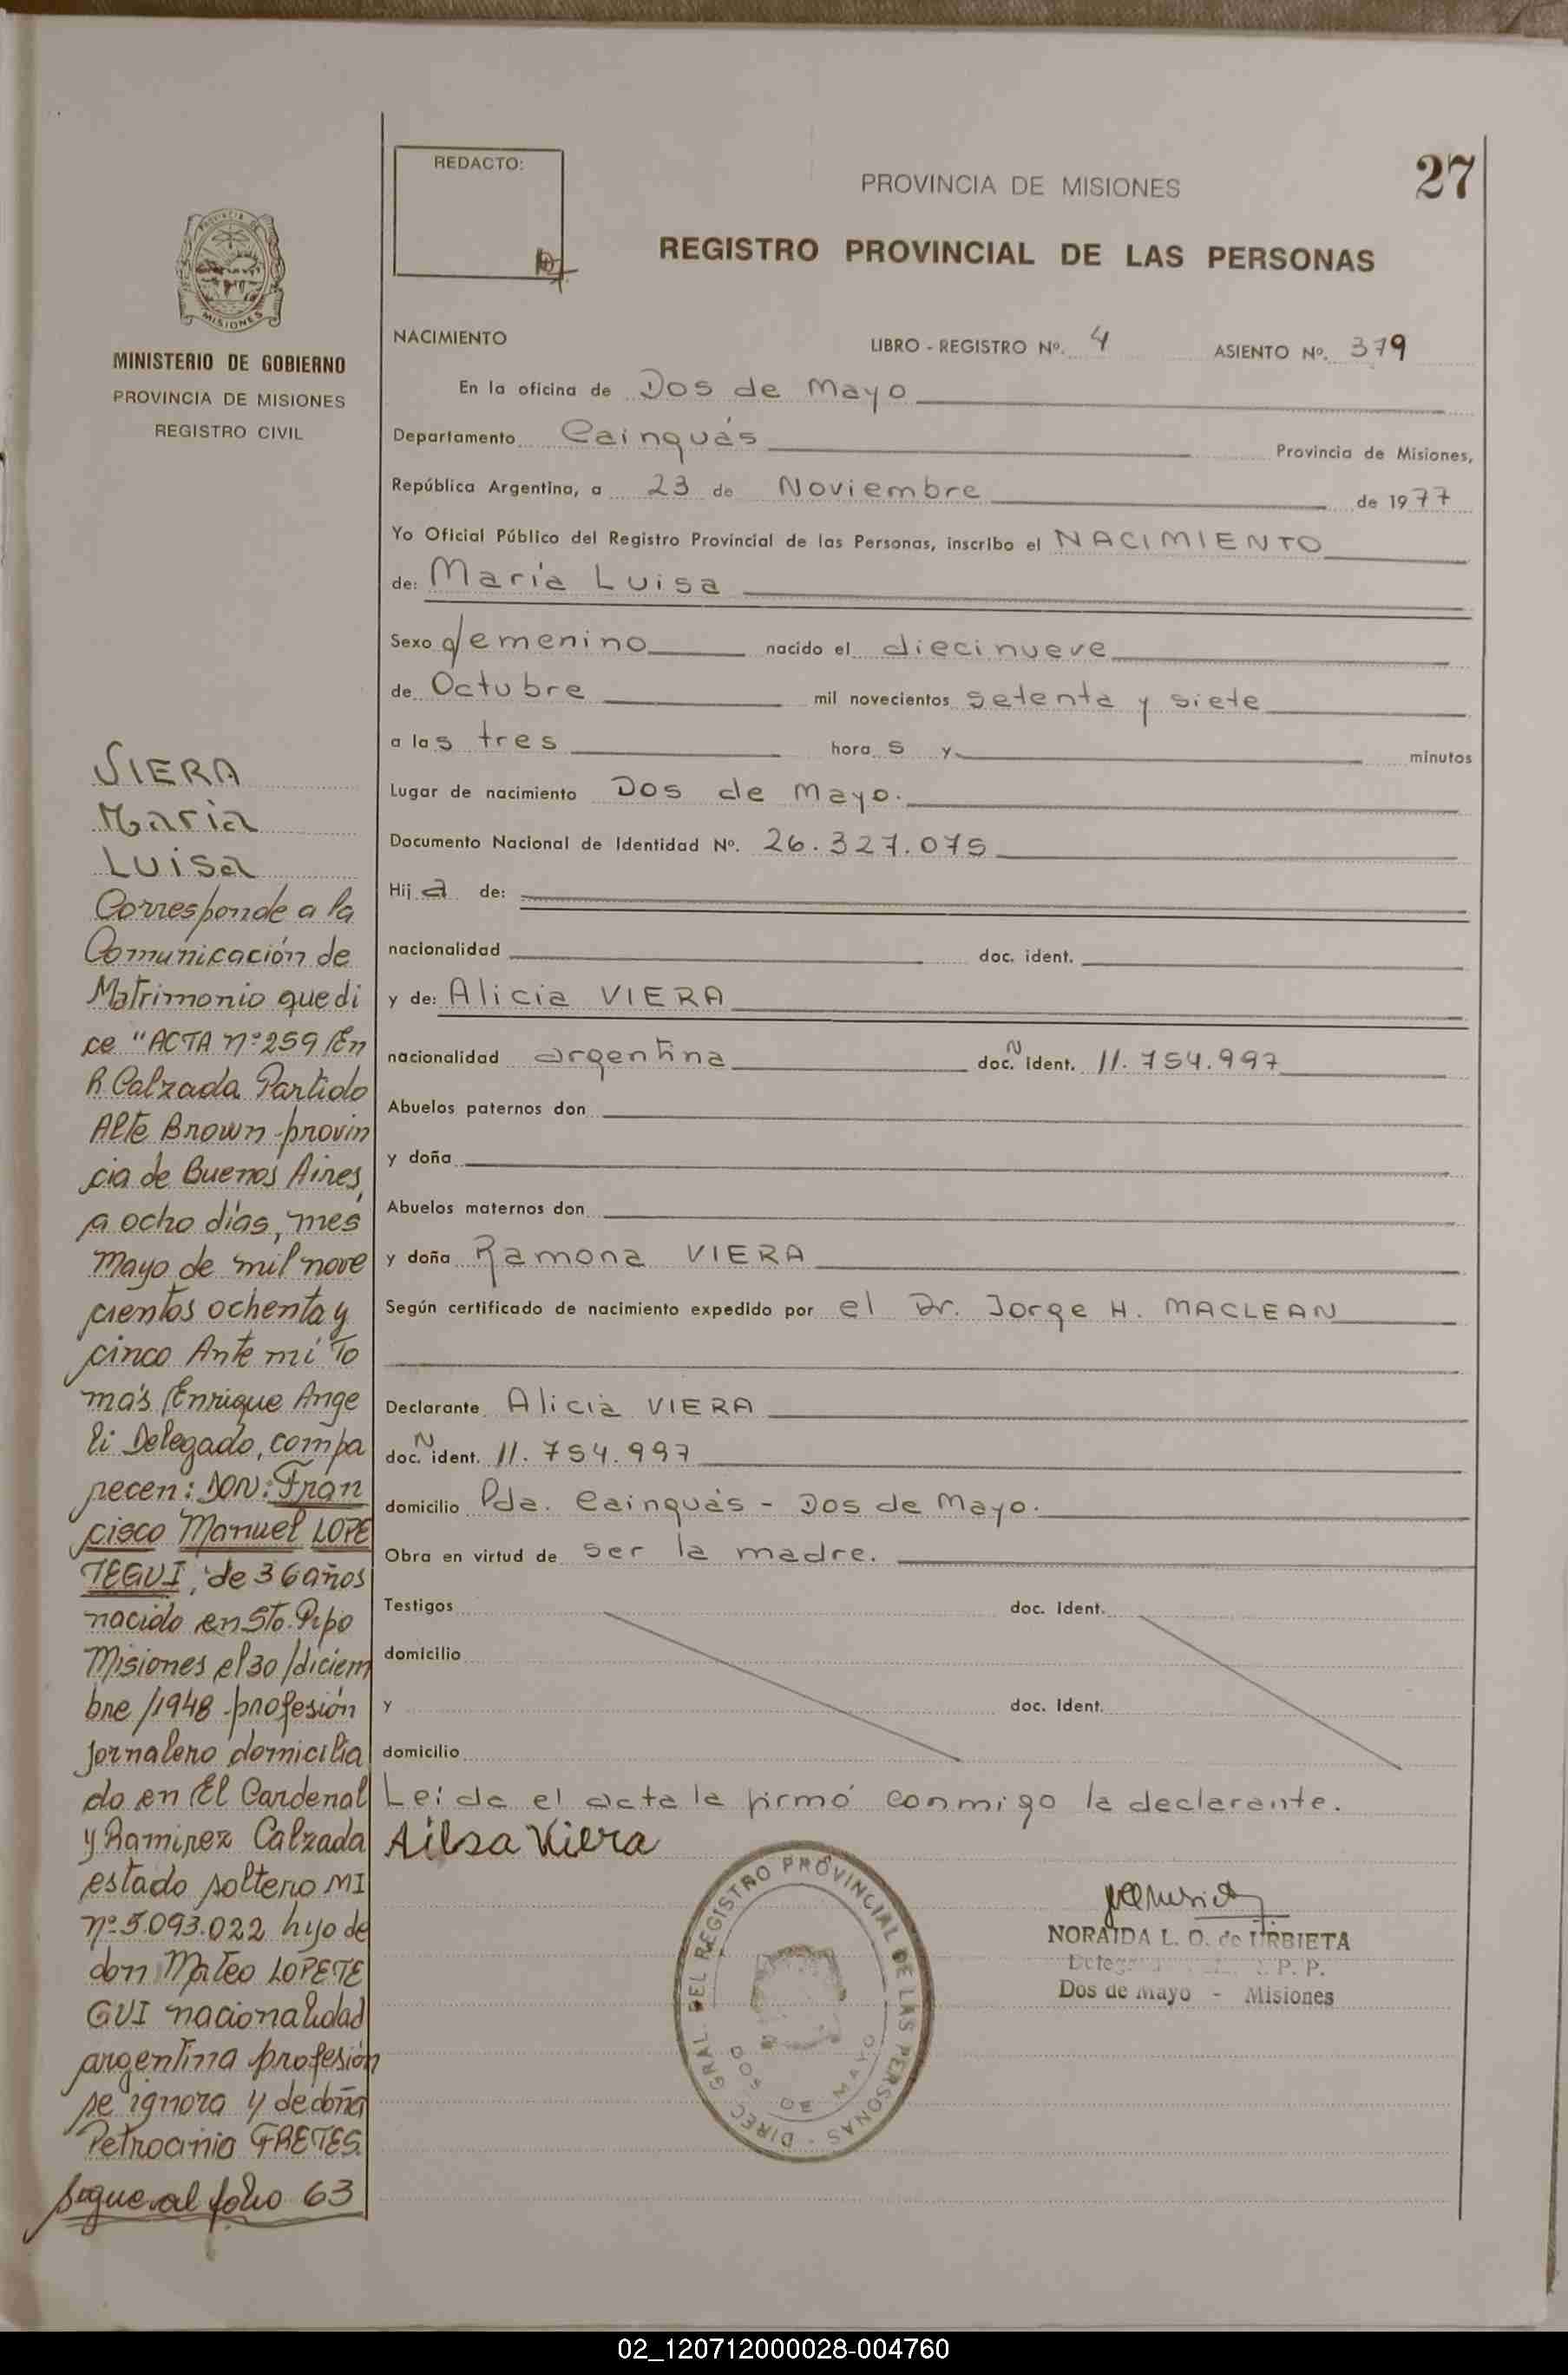 27
REDACTO:
PROVINCIA DE MISIONES
REGISTRO PROVINCIAL DE LAS PERSONAS
PROVINCIA DE
MISIONES
MINISTERIO DE GOBIERNO
PROVINCIA DE MISIONES
REGISTRO CIVIL
NACIMIENTO LIBRO - REGISTRO Nº. 4 ASIENTO Nº. 379
En la oficina de Dos de Mayo
Departamento Cainguás Provincia de Misiones,
República Argentina, a 23 de Noviembre de 1977
Yo Oficial Público del Registro Provincial de las Personas, inscribo el NACIMIENTO
de: María Luisa
Sexo femenino nacido el diecinueve
de Octubre mil novecientos setenta y siete
a las tres horas y minutos
Lugar de nacimiento Dos de Mayo.
Documento Nacional de Identidad Nº. 26.327.075
Hija de:
nacionalidad doc. ident.
y de: Alicia VIERA
nacionalidad argentina doc. N ident. 11.754.997
Abuelos paternos don
y doña
Abuelos maternos don
y doña Ramona VIERA
Según certificado de nacimiento expedido por el Dr. Jorge H. MACLEAN
Declarante Alicia VIERA
doc. N ident. 11.754.997
domicilio Pda. Cainguás - Dos de Mayo.
Obra en virtud de ser la madre.
Testigos doc. Ident.
domicilio
y doc. Ident.
domicilio
Leída el acta la firmó conmigo la declarante.
Ailsa Viera
DIREC. GRAL. DEL REGISTRO PROVINCIAL DE LAS PERSONAS
DOS DE MAYO
NORAIDA L. O. de URBIETA
P. P.
Dos de Mayo - Misiones
VIERA
Maria
Luisa
Corresponde a la
Comunicación de
Matrimonio que di
ce "ACTA nº 259 En
R Calzada Partido
Alte Brown provin
cia de Buenos Aires,
a ocho días, mes
Mayo de mil nove
cientos ochenta y
cinco Ante mi To
más Enrique Ange
li Delegado, compa
recen: DON: Fran
cisco Manuel LOPE
TEGUI, de 36 años
nacido en Sto. Pipo
Misiones el 30/diciem
bre/1948 profesión
Jornalero domicilia
do en El Cardenal
y Ramirez Calzada
estado soltero MI
nº 5.093.022 hijo de
don Mateo LOPETE
GUI nacionalidad
argentina profesión
se ignora y de doña
Petrocinia FRETES.
Sigue al folio 63
02_120712000028-004760